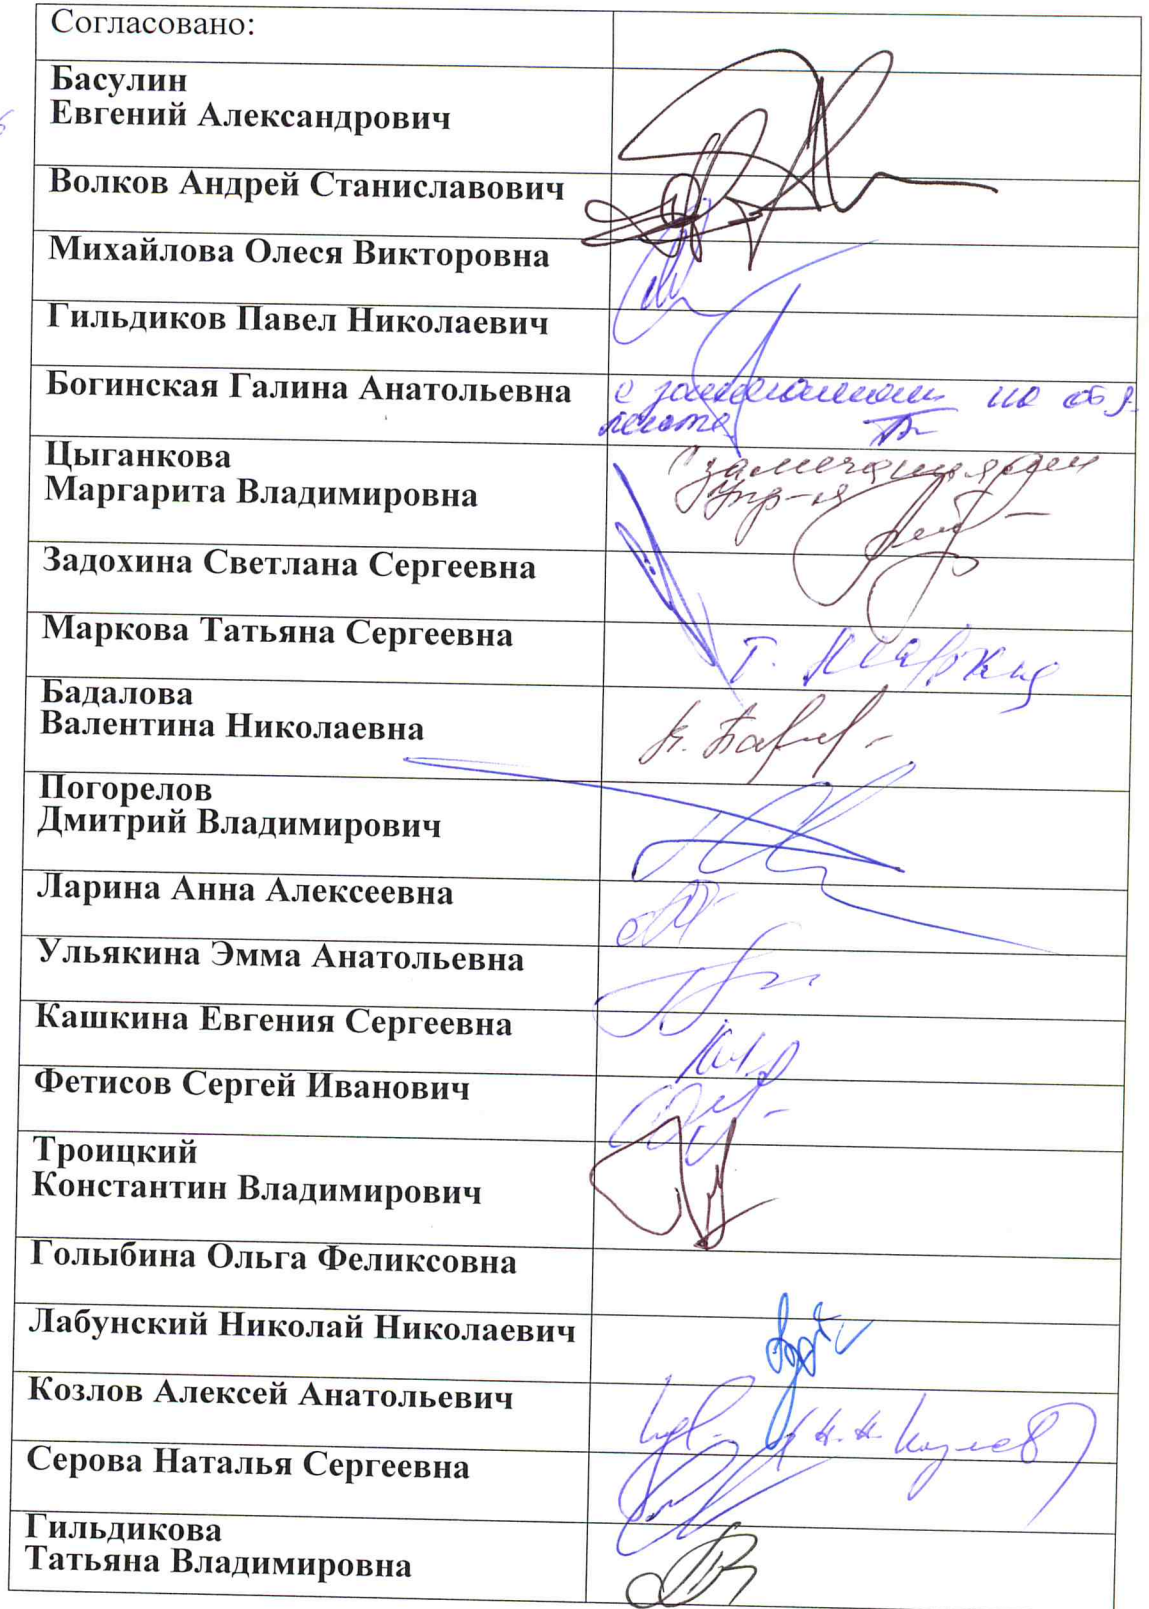 Согласовано:
Басулин
Евгений Александрович
Волков Андрей Станиславович
Михайлова Олеся Викторовна
Гильдиков Павел Николаевич
Богинская Галина Анатольевна
с замечаниями на
Цыганкова
Маргарита Владимировна
с замечаниями
упр-я
Задохина Светлана Сергеевна
Маркова Татьяна Сергеевна
Т. Марки
Бадалова
Валентина Николаевна
Погорелов
Дмитрий Владимирович
Ларина Анна Алексеевна
Ульякина Эмма Анатольевна
Кашкина Евгения Сергеевна
Фетисов Сергей Иванович
Троицкий
Константин Владимирович
Голыбина Ольга Феликсовна
Лабунский Николай Николаевич
Козлов Алексей Анатольевич
Серова Наталья Сергеевна
Гильдикова
Татьяна Владимировна